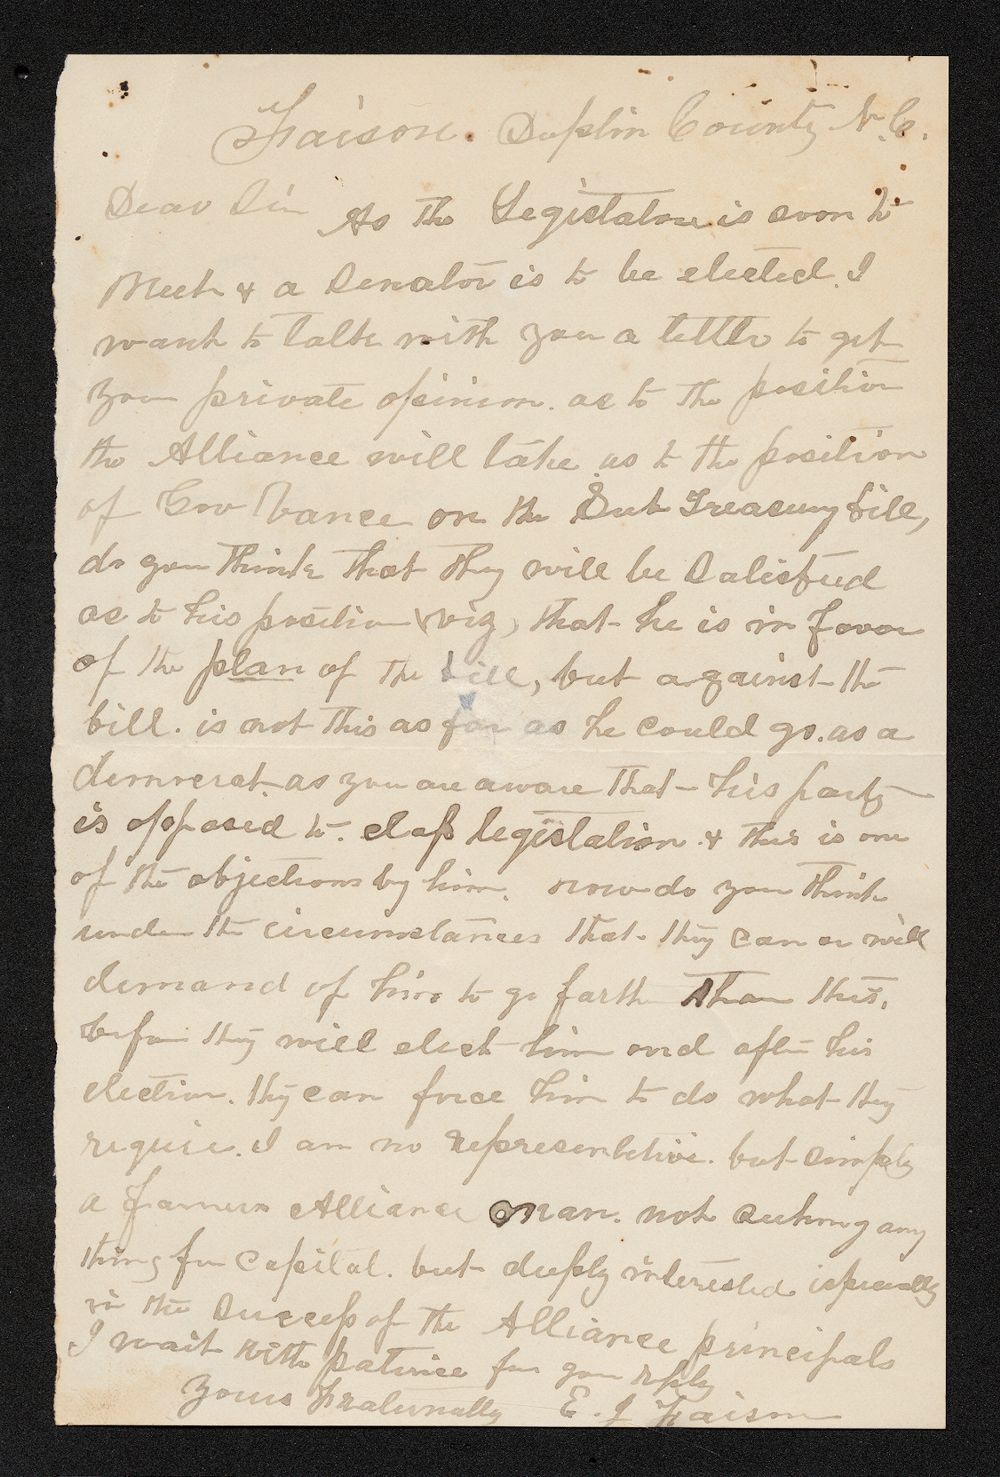 Faison. Duplin County N.C.
Dear Sir As the Legislature is soon to
Meet & a Senator is to be elected. I
want to talk with you a little to get
your private opinion. as to the position
the Alliance will take as to the position
of Gov Vance on the Sub Treasury bill,
do you think that they will be Satisfied
as to his position (viz) that he is in favor
of the plan of the bill, but against the
bill. is not this as far as he could go. as a
democrat. as you are aware that his party
is opposed to class legislation. & this is one
of the objections by him. now do you think
under the circumstances that they can or will
demand of him to go farther than this,
before they will elect him and after his
election. they can force him to do what they
require. I am no representative. but simply
a farmers Alliance man. not seeking any
thing for capital. but deeply interested especially
in the success of the Alliance principals
I wait with patience for your reply
Yours Fraternally E. J Faison